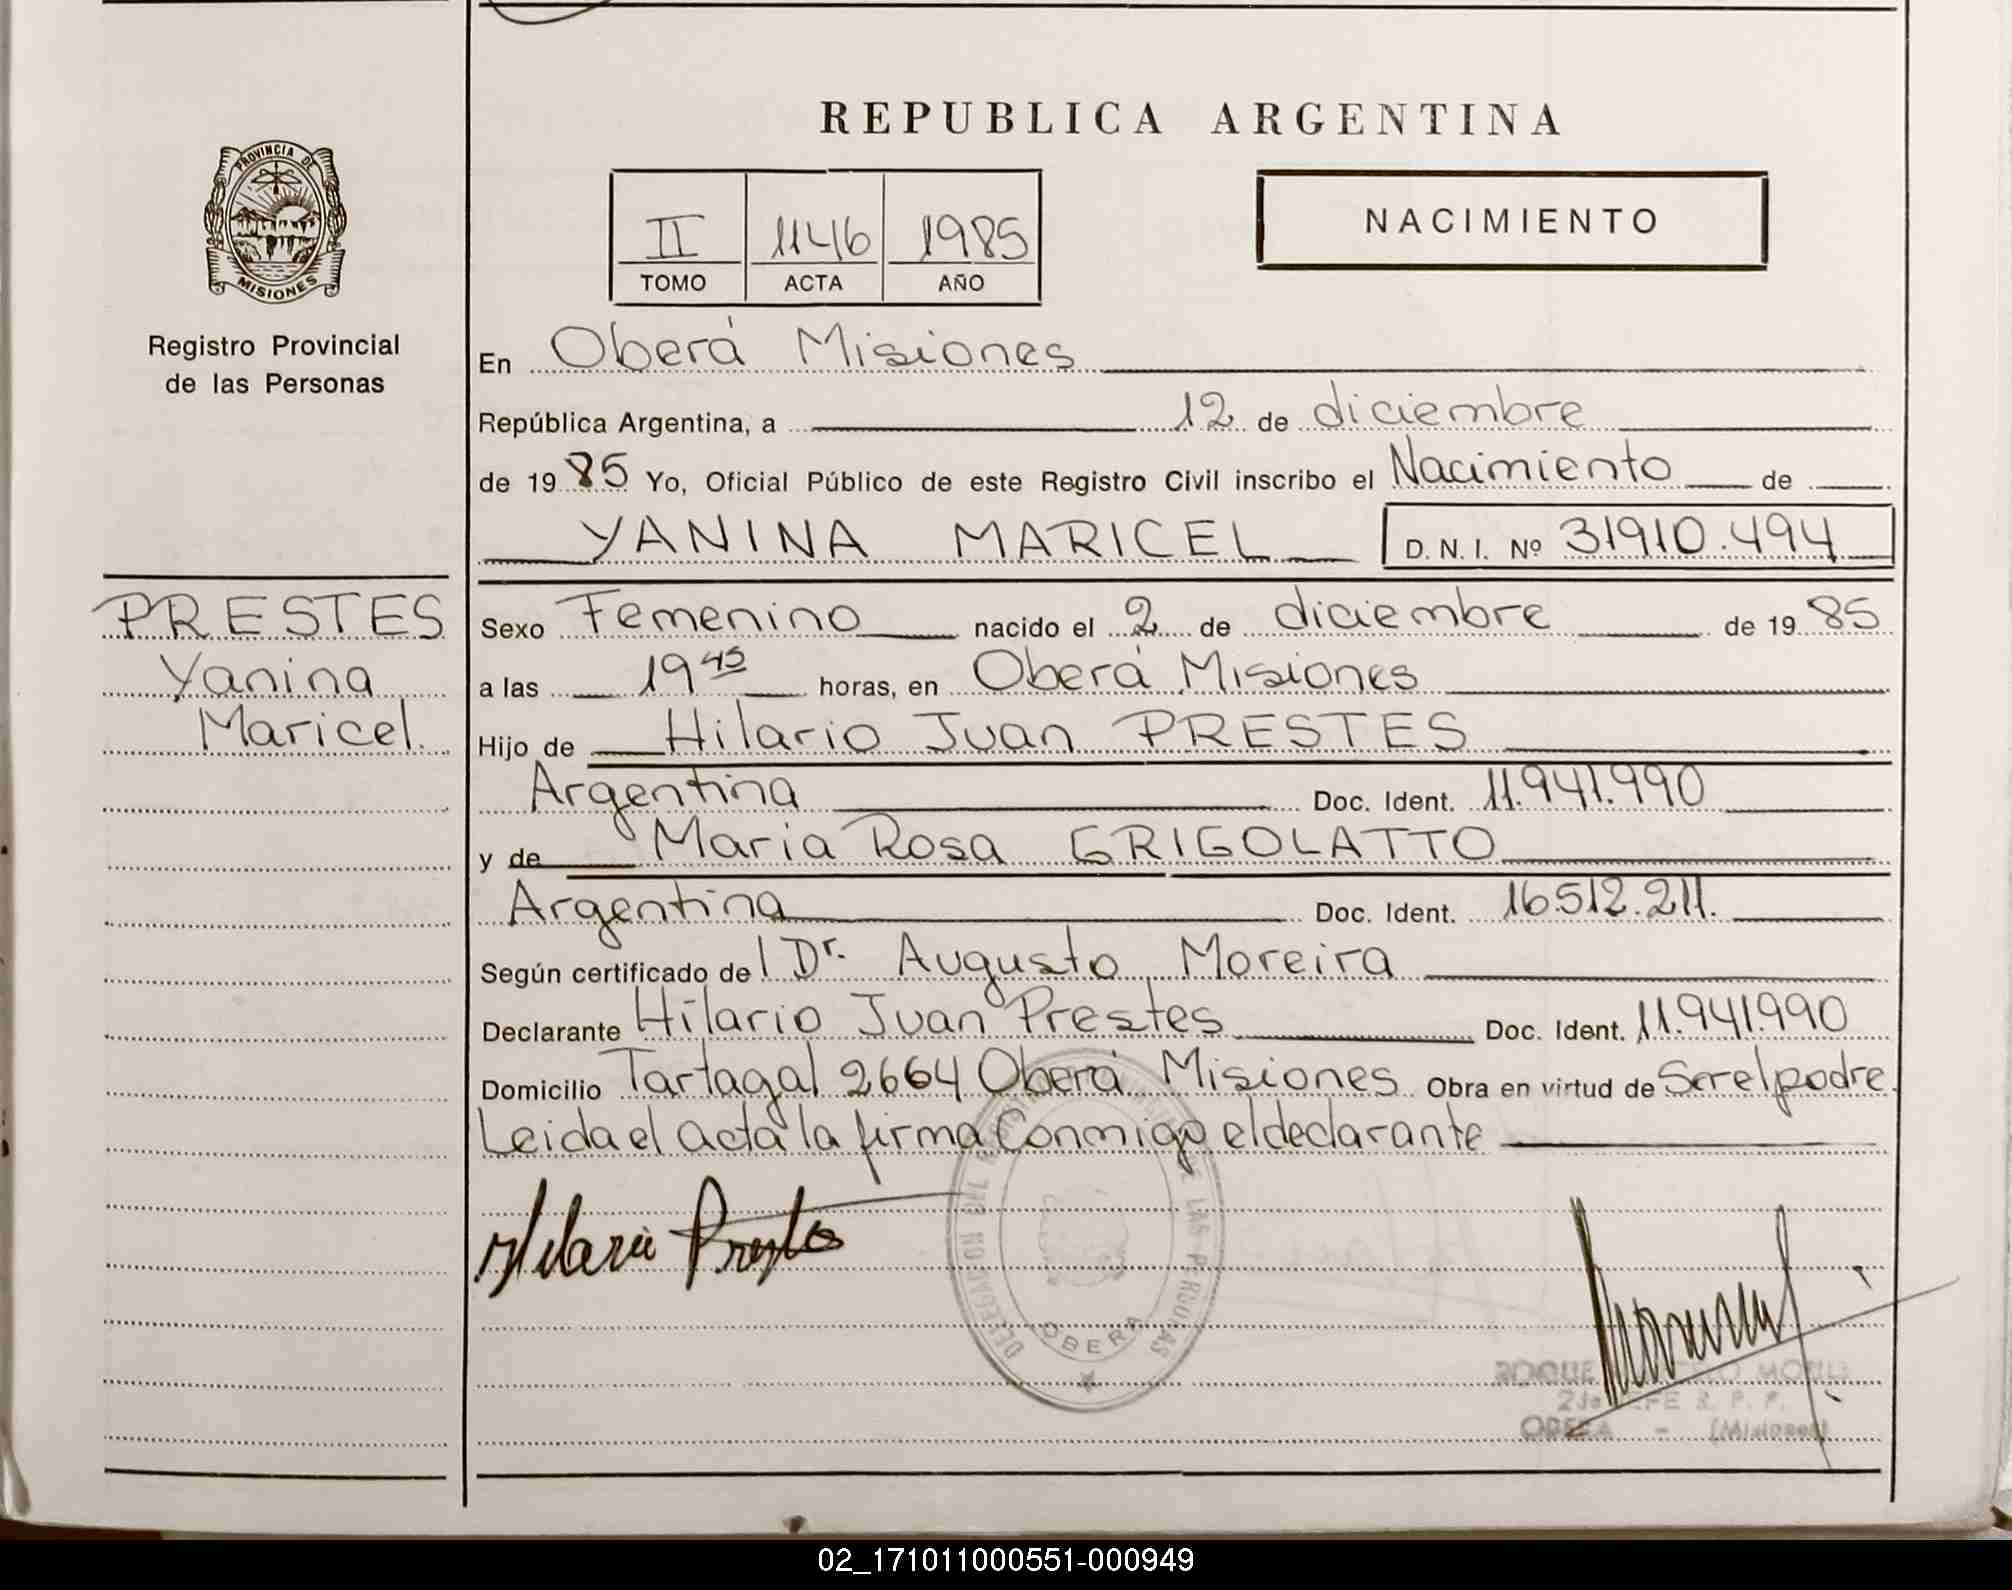 REPUBLICA ARGENTINA
PROVINCIA DE
MISIONES
Registro Provincial
de las Personas
II 1146 1985
TOMO ACTA AÑO
NACIMIENTO
En Oberá Misiones
República Argentina, a 12 de diciembre
de 1985 Yo, Oficial Público de este Registro Civil inscribo el Nacimiento de
YANINA MARICEL D.N.I. Nº 31910.494
PRESTES
Yanina
Maricel.
Sexo Femenino nacido el 2 de diciembre de 1985
a las 19 45 horas, en Oberá Misiones
Hijo de Hilario Juan PRESTES
Argentina Doc. Ident. 11.941.990
y de Maria Rosa GRIGOLATTO
Argentina Doc. Ident. 16.512.211.
Según certificado del Dr. Augusto Moreira
Declarante Hilario Juan Prestes Doc. Ident. 11.941.990
Domicilio Tartagal 2664 Oberá Misiones Obra en virtud de Ser el padre
Leida el acta la firma Conmigo el declarante
Hilario Prestes
LAS PERSONAS
OBERA
ROQUE
OBERA - (Misiones)
02_171011000551-000949